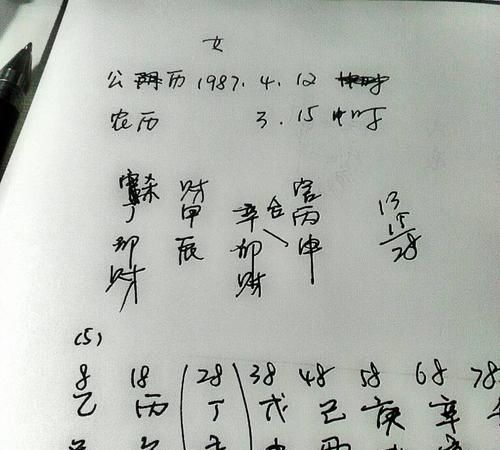 女
公历 1987. 4. 12
农历 3. 15 申时
杀 财 官
丁 甲 辛 合 丙 13
卯 辰 卯 申 15
财 财 28
(5)
8 18 (28) 38 48 58 68 78
乙 丙 丁 戊 己 庚 辛